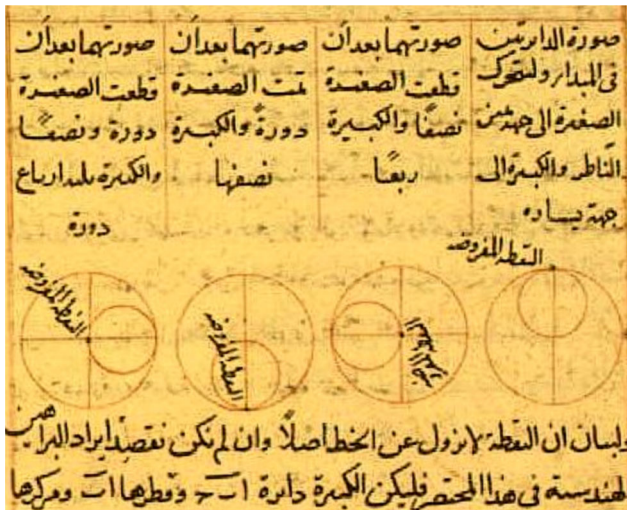 صورة الدايرتين
فى المبدا ولتتحرك
الصغيرة الى جهة يمين
الناظر والكبيرة الى
جهة يساره
النقطة المفروضة
صورتهما بعد أن
قطعت الصغيرة
نصفًا والكبيرة
ربعًا
صورتهما بعد أن
تمت الصغيرة
دورةً والكبيرة
نصفها
النقطة المفروضة
صورتهما بعد أن
قطعت الصغيرة
دورة ونصفًا
والكبيرة ثلثة ارباع
دورة
النقطة المفروضة
ولبيان ان النقطة لا تزول عن الخط اصلًا وان لم نكن نقصد ايراد البراهين
الهندسية فى هذا المختصر فليكن الكبيرة دايرة ا ب ح وقطرها ا ب ومركزها